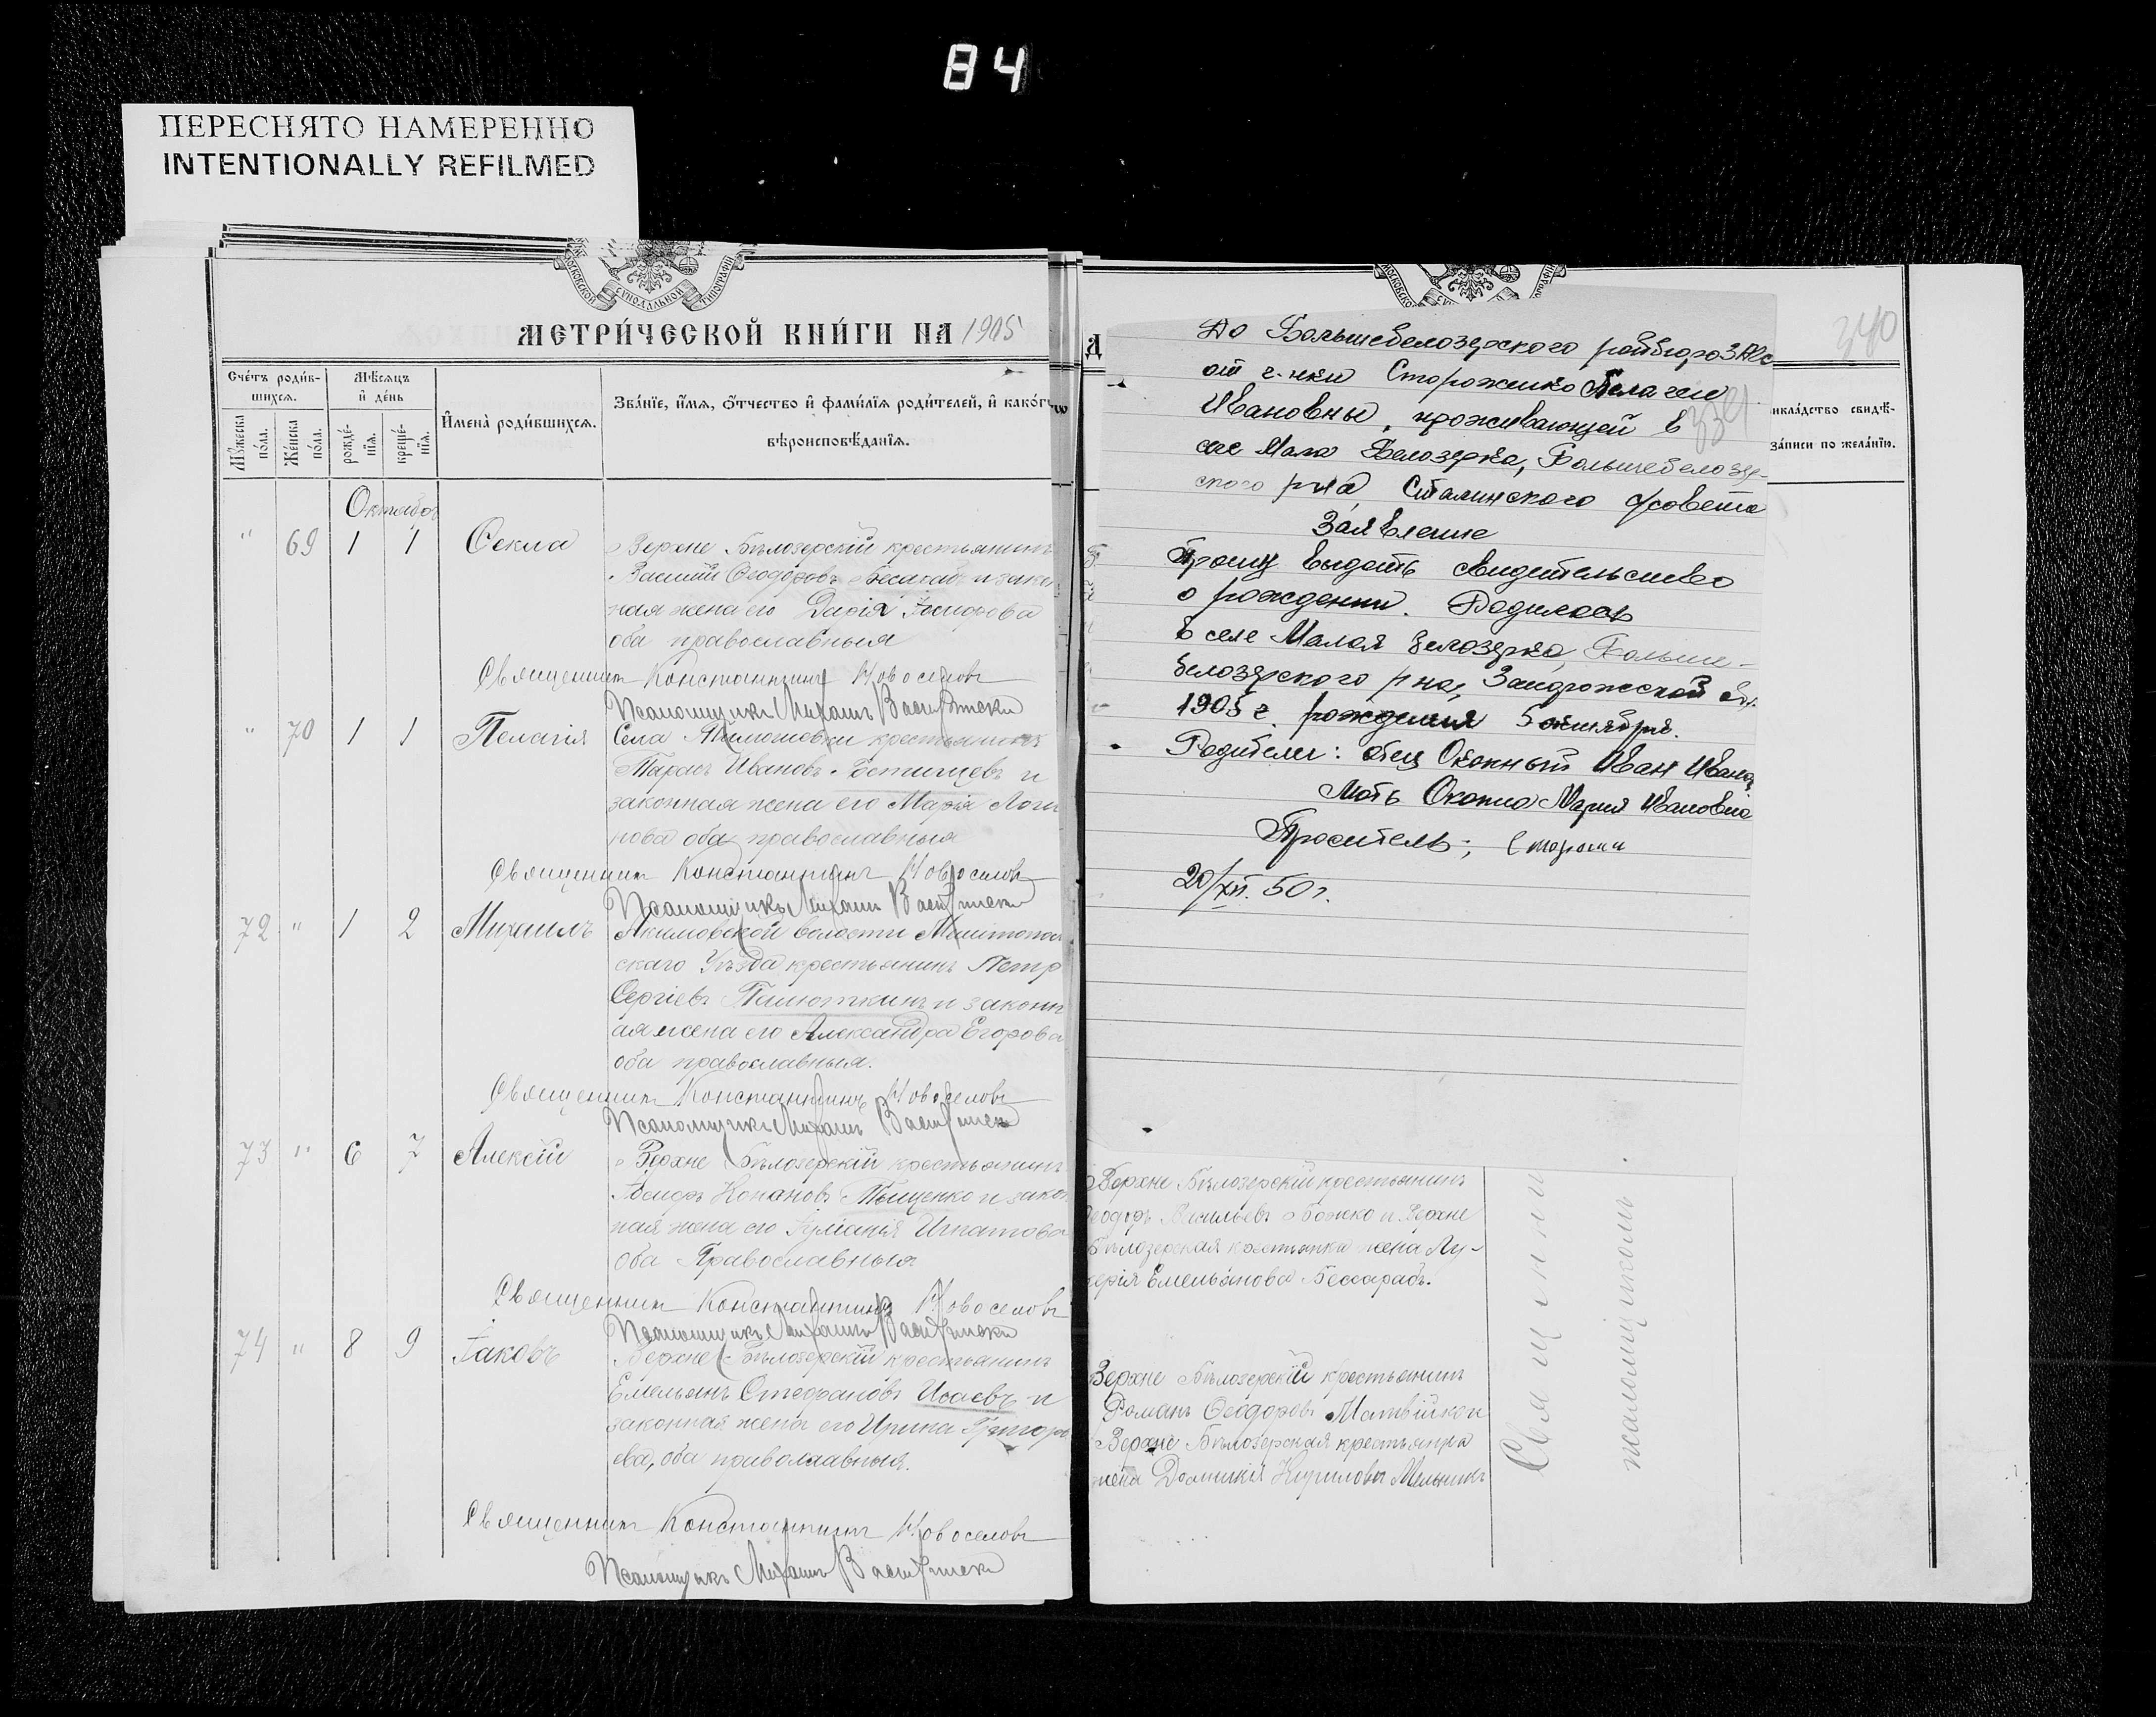 84
ПЕРЕСНЯТО НАМЕРЕННО
INTENTIONALLY REFILMED
МОСКОВСКОЙ СѴНОДАЛЬНОЙ ТИПОГРАФІИ
МЕТРИ́ЧЕСКОЙ КНИ́ГИ НА 1905
Сче́тъ роди́в-
шихся.
Мѣ́сяцъ
и҆ де́нь
Мꙋ́жеска по́ла.
Же́нска по́ла.
рожде́-
нїя.
креще́-
нїя.
И҆мена̀ роди́вшихся.
Зва́нїе, и҆́мя, ѻ҆́тчество и҆ фами́лїя роди́телей, и҆ како́гѡ
вѣроисповѣ́данїя.
Октябрь
" 69 1 1 Ѳекла
Верхне Бѣлозерскій крестьянинъ
Василій Ѳеодоровъ и закон
ная жена его Дарія Іосифова
оба православныя
Священникъ Константинъ Новоселовъ
Псаломщикъ Михаилъ
" 70 1 1 Пелагія
Села крестьянинъ
Тарасъ Ивановъ и
законная жена его Марія Логи
нова оба православныя
Священникъ Константинъ Новоселовъ
Псаломщикъ Михаилъ
72 " 1 2 Михаилъ
Акимовской волости Мелитополь
скаго Уѣзда крестьянинъ Петръ
Сергіевъ и законн
ая жена его Александра Егорова
оба православныя.
Священникъ Константинъ Новоселовъ
Псаломщикъ Михаилъ
73 " 6 7 Алексій
Верхне Бѣлозерскій крестьянинъ
Іосифъ Конановъ и закон
ная жена его Игнатова
оба Православныя
Священникъ Константинъ Новоселовъ
Псаломщикъ Михаилъ
74 " 8 9 Іаковъ
Верхне-Бѣлозерскій крестьянинъ
Емельянъ Стефановъ Исаевъ и
законная жена его Ирина Григорь
ева, оба православныя.
Священникъ Константинъ Новоселовъ
Псаломщикъ Михаилъ
340
339
До Большебелозерского райбюро ЗАГС
от г-нки Стороженко Пелагеи
Ивановны, проживающей в
селе Мала Белозерка, Большебелозер-
ского р-на Сталинского с/совета
Заявление
Прошу выдать свидетельство
о рождении. Родилась
в селе Малая Белозерка, Больше-
белозерского р-на, Запорожской обл.
1905 г. рождения 5 октября.
Родители: отец Окопный Иван Иванов
Мать Окопна Мария Ивановна
Проситель: Сторожен
20/XII. 50 г.
рꙋкла́дство свидѣ́-
за́писи по жела́нїю.
Верхне Бѣлозерскій крестьянинъ
Ѳеодоръ Васильевъ Божко и Верхне
Бѣлозерская крестьянка жена Лу-
керія Емельянова Бессарабъ.
Верхне Бѣлозерскій крестьянинъ
Романъ Ѳеодоровъ Матвійко и
Верхне Бѣлозерская крестьянка
жена Домникія Кирилова Мельникъ
Священникъ
псаломщикомъ